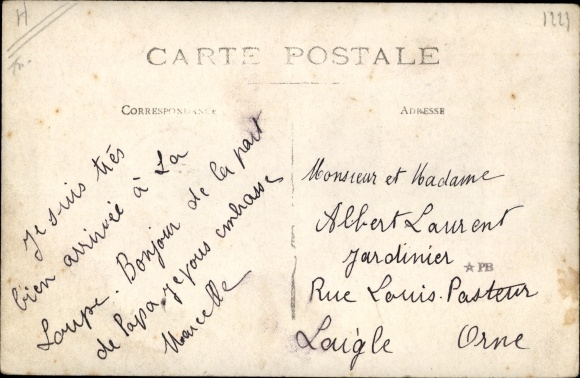 H
1221
CARTE POSTALE
CORRESPONDANCE
ADRESSE
Je suis très
bien arrivée à La
Loupe. Bonjour de la part
de Papa. je vous embrasse
Marcelle
Monsieur et Madame
Albert Laurent
Jardinier
★PB
Rue Louis-Pasteur
Laigle Orne